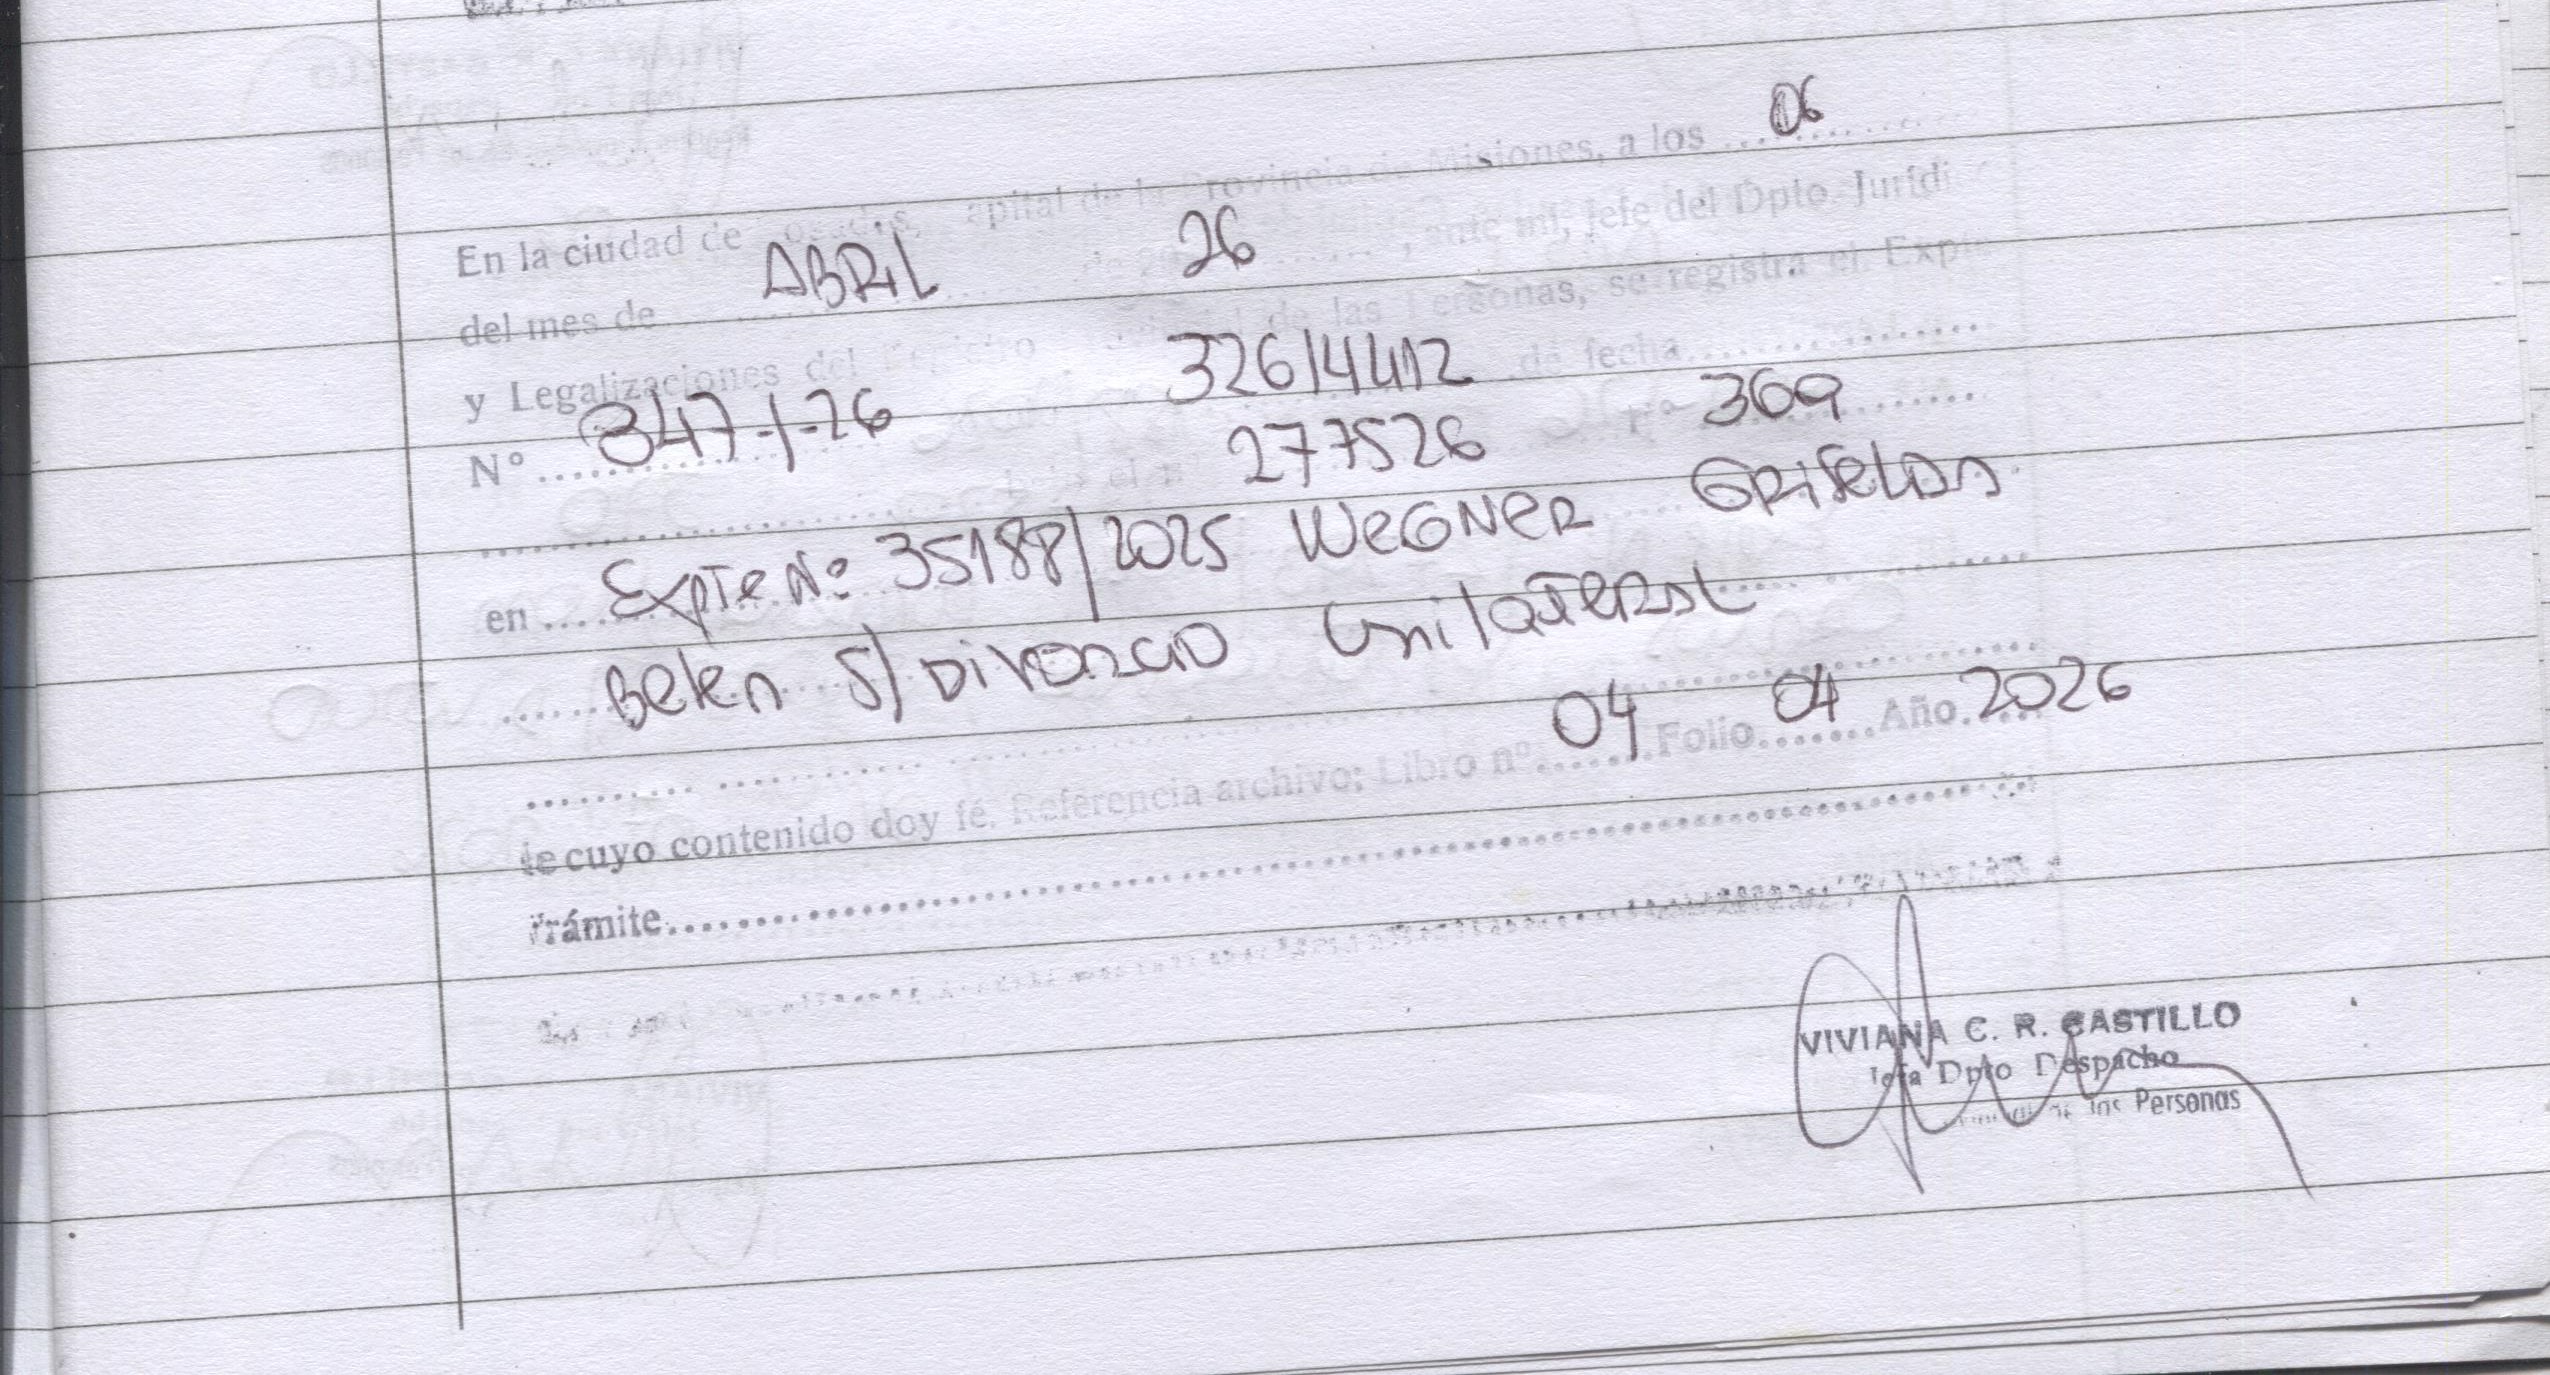 En la ciudad de Posadas, capital de la Provincia de Misiones, a los 06
del mes de ABRIL de 20 26, ante mi, Jefe del Dpto. Jurídi
y Legalizaciones del Registro de las Personas, se registra el Expte
Nº 347-1-26 32614412 de fecha
277526 369
en Expte Nº: 35188/2025 WEGNER GRISELDA
Belen S/ Divorcio Unilateral
de cuyo contenido doy fé. Referencia archivo; Libro nº 04 Folio 04 Año 2026
Trámite
VIVIANA C. R. CASTILLO
Jefa Dpto Despacho
de las Personas